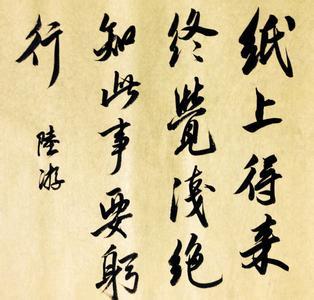 纸上得来
终觉浅绝
知此事要躬
行
陆游